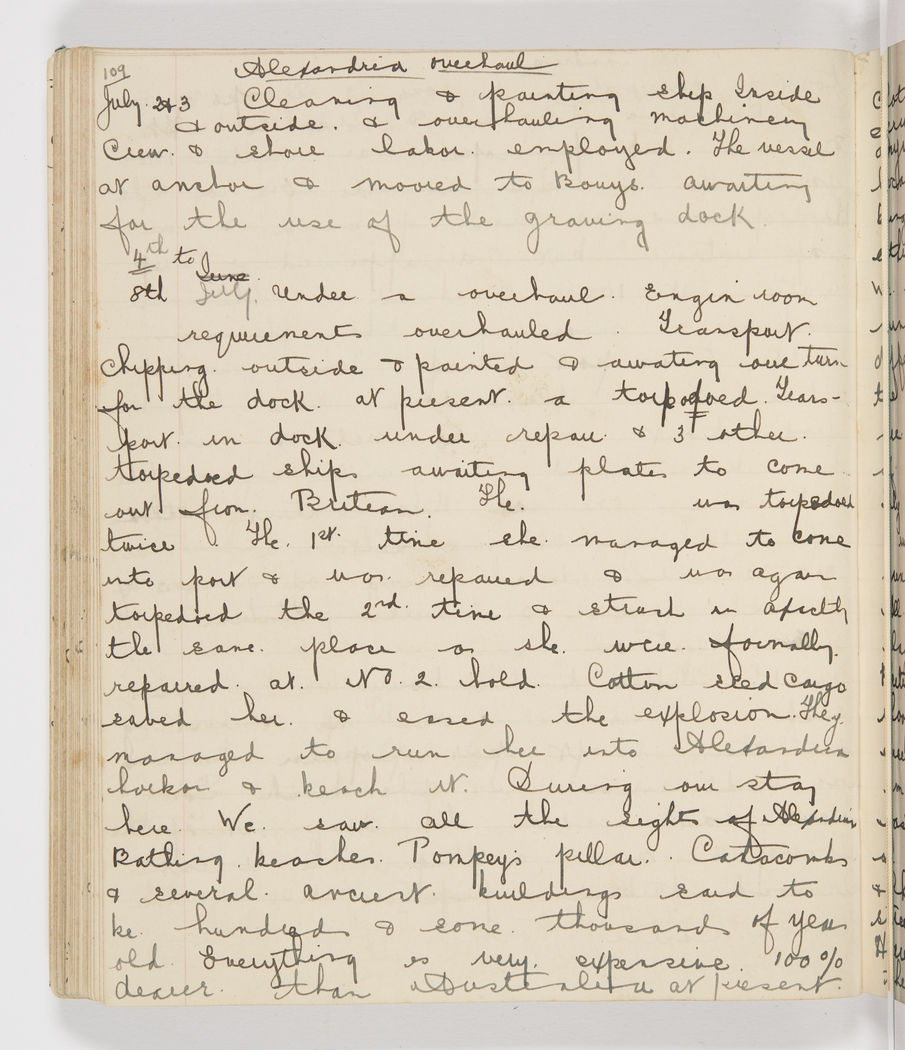 109
Alexandria overhaul
July 2&3 Cleaning & painting ship Inside
& outside. & overhauling machinery
Crew. & shore labor. employed. The vessel
at anchor & moored to Bouys. awaiting
for the use of the graving dock.
4th to June
8th July. Under a overhaul. Engin room
requirements overhauled. Transport.
Chipping. outside & painted & awating our turn
for the dock. at present. a torpedoed. Trans-
port. in dock. under repair & 3 other.
torpedoed ships awaiting plates to come
out from. Britian. The. was torpedoed
twice. The. 1st. time she. managed to come
into port & was. repaired & was again
torpedoed the 2nd. time & struck in
the same. place as she. were. formally.
repaired. at. No. 2. hold. Cotton seed cargo
saved her. & eased the explosion. They
managed to run her into Alexandria
harbor & beach it. During our stay
here. We. saw. all the sights of Alexandria
Bathing. beaches. Pompey's pillar. Catacombs
& several. ancient. buildings said to
be. hundreds & some. thousands of years
old. Everything is very. expensive. 100%
dearer. than Australia at present.